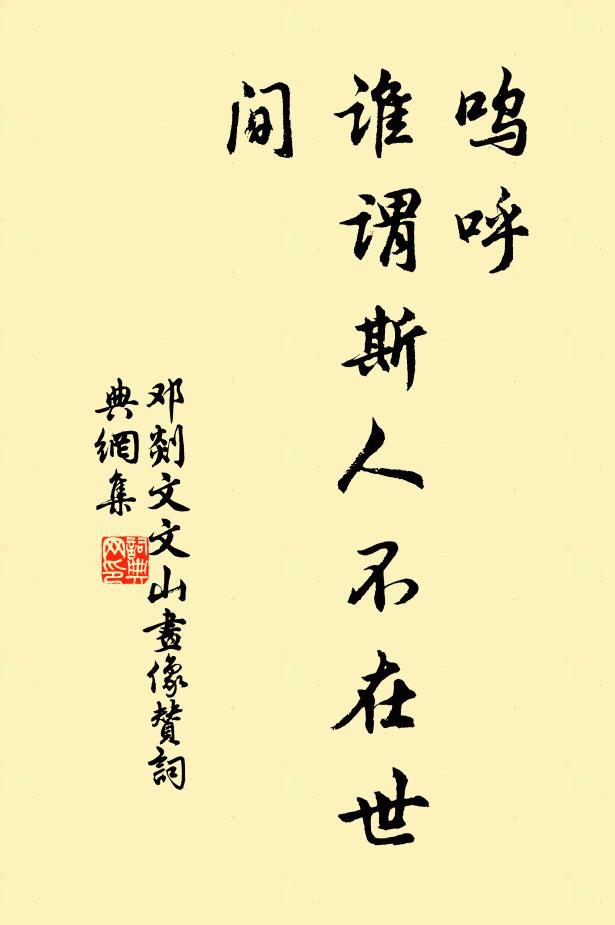 呜呼
谁谓斯人不在世
间
邓剡文文山畫像赞詞
典網集
詞典
网印